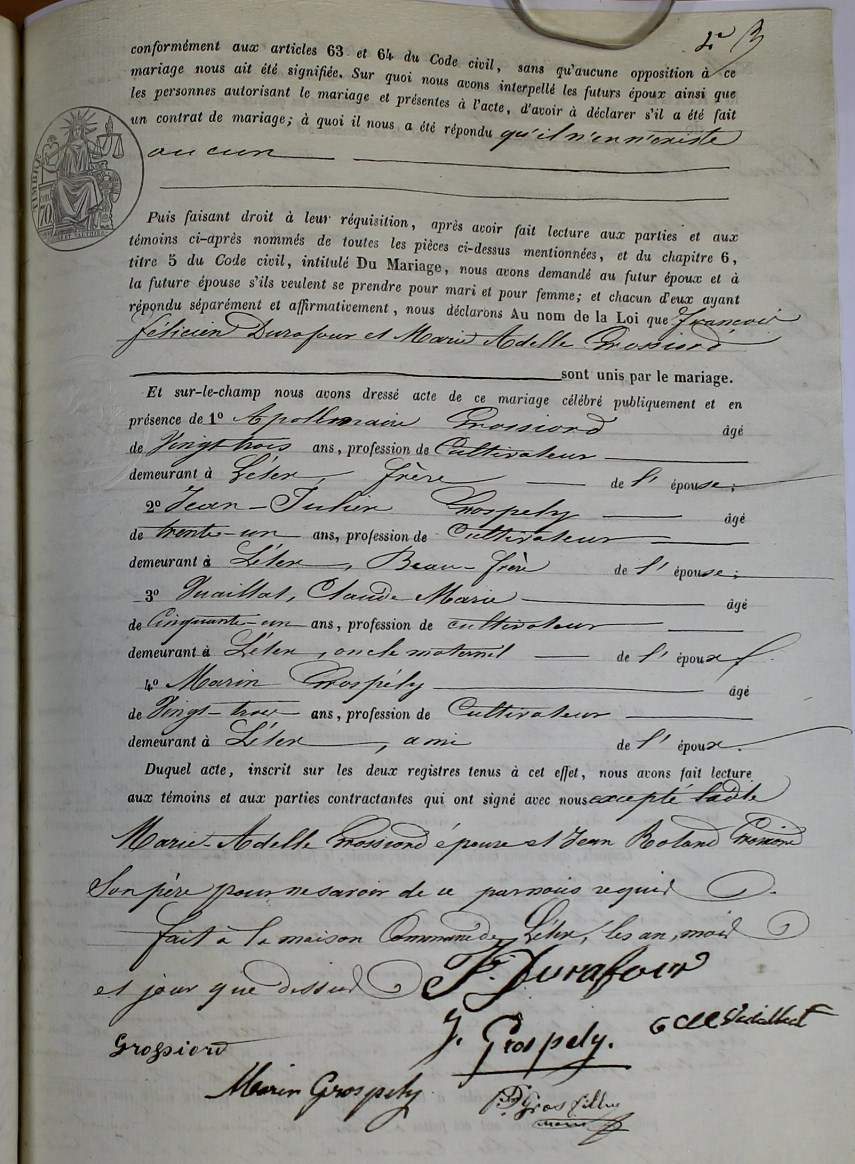 conformément aux articles 63 et 64 du Code civil, sans qu'aucune opposition à ce
mariage nous ait été signifiée. Sur quoi nous avons interpellé les futurs époux ainsi que
les personnes autorisant le mariage et présentes à l'acte, d'avoir à déclarer s'il a été fait
un contrat de mariage; à quoi il nous a été répondu qu'il n'en n'existe
aucun
TIMBRE
Puis faisant droit à leur réquisition, après avoir fait lecture aux parties et aux
témoins ci-après nommés de toutes les pièces ci-dessus mentionnées, et du chapitre 6,
titre 5 du Code civil, intitulé Du Mariage, nous avons demandé au futur époux et à
la future épouse s'ils veulent se prendre pour mari et pour femme; et chacun d'eux ayant
répondu séparément et affirmativement, nous déclarons Au nom de la Loi que François
félicien Durafour et Marie Adelle Grossiord
sont unis par le mariage.
Et sur-le-champ nous avons dressé acte de ce mariage célébré publiquement et en
présence de 1º Apollinaire Grossiord âgé
de Vingt trois ans, profession de Cultivateur
demeurant à Lélex, frère de l'épouse;
2º Jean-Julien Grospely âgé
de trente-un ans, profession de Cultivateur
demeurant à Lélex, Beau-frère de l'épouse;
3º Vuaillat, Claude Marie âgé
de Cinquante-un ans, profession de cultivateur
demeurant à Lélex, oncle maternel de l'époux
4º Marin Grospély âgé
de Vingt-trois ans, profession de Cultivateur
demeurant à Lélex, ami de l'époux.
Duquel acte, inscrit sur les deux registres tenus à cet effet, nous avons fait lecture
aux témoins et aux parties contractantes qui ont signé avec nous excepté ladite
Marie-Adelle Grossiord épouse et Jean Roland Grossiord
Son père pour ne savoir de ce par nous requis
fait à la maison Commune de Lélex, les an, mois
et jour que dessus F. Durafour
Grossiord J. Grospely.
Marin Grospely